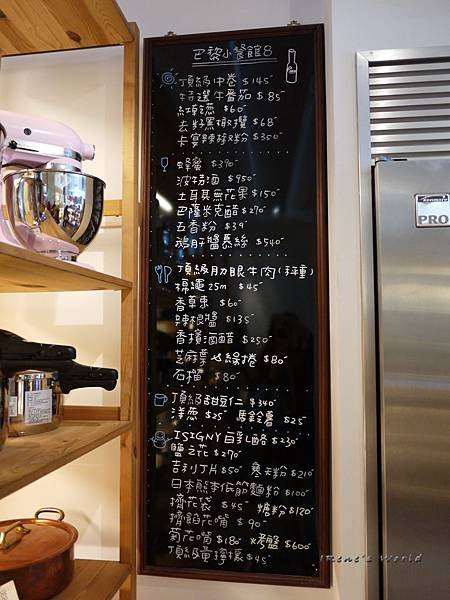 巴黎小餐館8
頂級中卷 $145
特選牛番茄 $85
紅蔥 $60
去籽黑橄欖 $68
卡宴辣椒粉 $350
蜂蜜 $390
波特酒 $950
土耳其無花果 $150
巴薩米克醋 $270
五香粉 $39
鵝肝醬 $540
頂級肋眼牛肉(秤重)
棉繩25m $45
香草束 $60
辣根醬 $135
香檳酒醋 $250
芝麻葉 綠捲 $80
石榴 $80
頂級甜豆仁 $340
洋蔥 $25 馬鈴薯 $25
ISIGNY白乳酪 $230
鹽之花 $270
吉利丁片 $50 寒天粉 $210
日本熊本低筋麵粉 $100
擠花袋 $45 糖粉 $120
擠餡花嘴 $90
菊花嘴 $180 烤盤 $600
頂級黃檸檬 $45
PRO
IRene's World